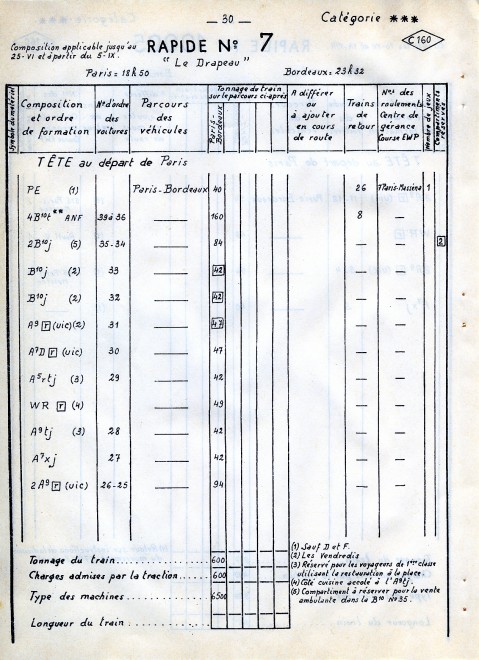 — 30 —
Catégorie ***
Composition applicable jusqu'au
25-VI et à partir du 5-IX.
RAPIDE No 7
C160
"Le Drapeau"
Paris = 18h50
Bordeaux = 23h32
Symbole du matériel
Composition
et ordre
de formation
Nos d'ordre
des
voitures
Parcours
des
véhicules
Tonnage du train
sur le parcours ci-après
Paris-
Bordeaux
A différer
ou
à ajouter
en cours
de route
Trains
de
retour
Nos des
roulements
Centre de
gérance
Course EWP
Nombre de jeux
Compartiments
réservés
TÊTE au départ de Paris
PE (1) Paris-Bordeaux 40 26 1
4B10t** ANF 39 à 36 —— 160 8 —
2B10j (5) 35-34 —— 84 — — 2
B10j (2) 33 —— 42 — —
B10j (2) 32 —— 42 — —
A9 r (uic) (2) 31 —— 47 — —
A7D r (uic) 30 —— 47 — —
A5rtj (3) 29 —— 42 — —
WR r (4) —— 49 — —
A9tj (3) 28 —— 42 — —
A7xj 27 —— 42 — —
2A9 r (uic) 26-25 —— 94 — —
Tonnage du train 600
Charges admises par la traction 600
Type des machines 6500
Longueur du train
(1) Sauf D et F.
(2) Les Vendredis
(3) Réservé pour les voyageurs de 1ère classe
utilisant la restauration à la place.
(4) Côté cuisine accolé à l'A9tj.
(5) Compartiment à réserver pour la vente
ambulante dans la B10 No 35.